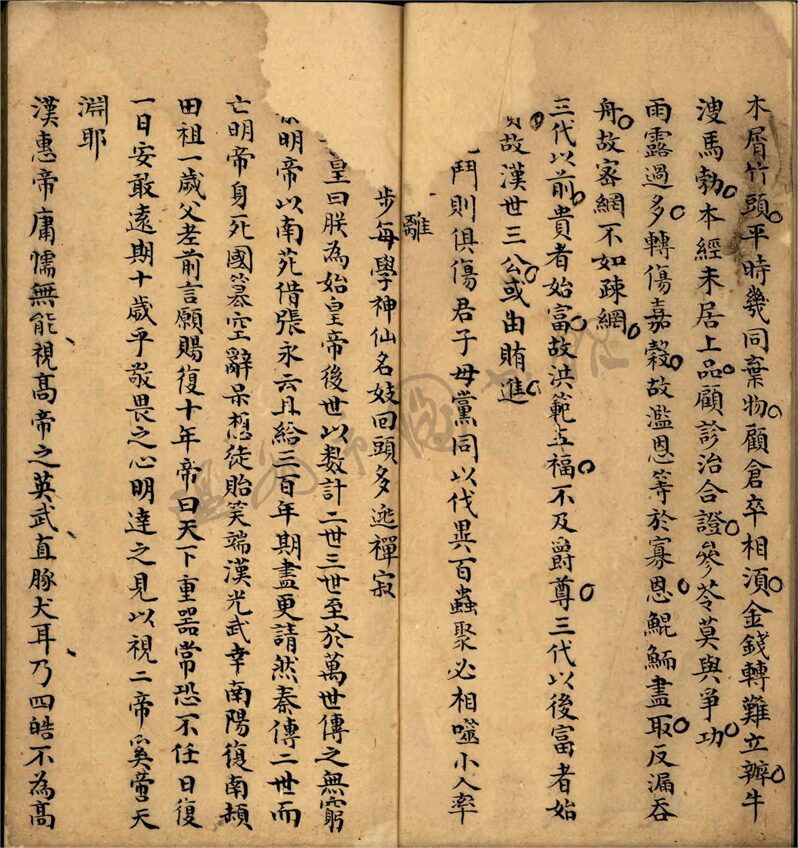 木屑竹頭平時幾同棄物顧倉卒相須金錢轉難立辦牛
溲馬勃本經未居上品顧診治合證參苓莫與爭功
雨露過多轉傷嘉穀故濫恩等於寡恩鯤鮞盡取反漏吞
舟故密網不如疎網
三代以前貴者始富故洪範五福不及爵尊三代以後富者始
貴故漢世三公或由賄進
鬥則俱傷君子毋黨同以伐異百蟲聚必相噬小人率
離
步每學神仙名妓回頭多逃禪寂
皇曰朕為始皇帝後世以数計二世三世至於萬世傳之無窮
明帝以南苑借張永云且給三百年期盡更請然秦傳二世而
亡明帝身死國篡空辭杲想徒貽笑端漢光武幸南陽復南頓
田祖一歲父老前言願賜復十年帝曰天下重器常恐不任日復
一日安敢遠期十歲乎敬畏之心明達之見以視二帝奚啻天
淵耶
漢惠帝庸懦無能視高帝之英武直豚犬耳乃四皓不為高